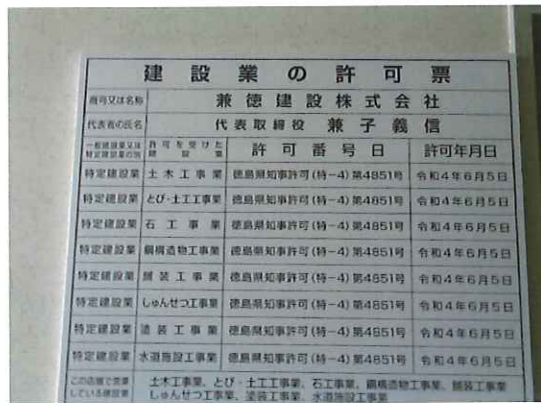 建設業の許可票
商号又は名称 兼徳建設株式会社
代表者の氏名 代表取締役 兼子義信
一般建設業又は特定建設業の別 許可を受けた建設業 許可番号日 許可年月日
特定建設業 土木工事業 徳島県知事許可(特-4)第4851号 令和4年6月5日
特定建設業 とび・土工工事業 徳島県知事許可(特-4)第4851号 令和4年6月5日
特定建設業 石工事業 徳島県知事許可(特-4)第4851号 令和4年6月5日
特定建設業 鋼構造物工事業 徳島県知事許可(特-4)第4851号 令和4年6月5日
特定建設業 舗装工事業 徳島県知事許可(特-4)第4851号 令和4年6月5日
特定建設業 しゅんせつ工事業 徳島県知事許可(特-4)第4851号 令和4年6月5日
特定建設業 塗装工事業 徳島県知事許可(特-4)第4851号 令和4年6月5日
特定建設業 水道施設工事業 徳島県知事許可(特-4)第4851号 令和4年6月5日
この店舗で営業している建設業 土木工事業、とび・土工工事業、石工事業、鋼構造物工事業、舗装工事業
しゅんせつ工事業、塗装工事業、水道施設工事業